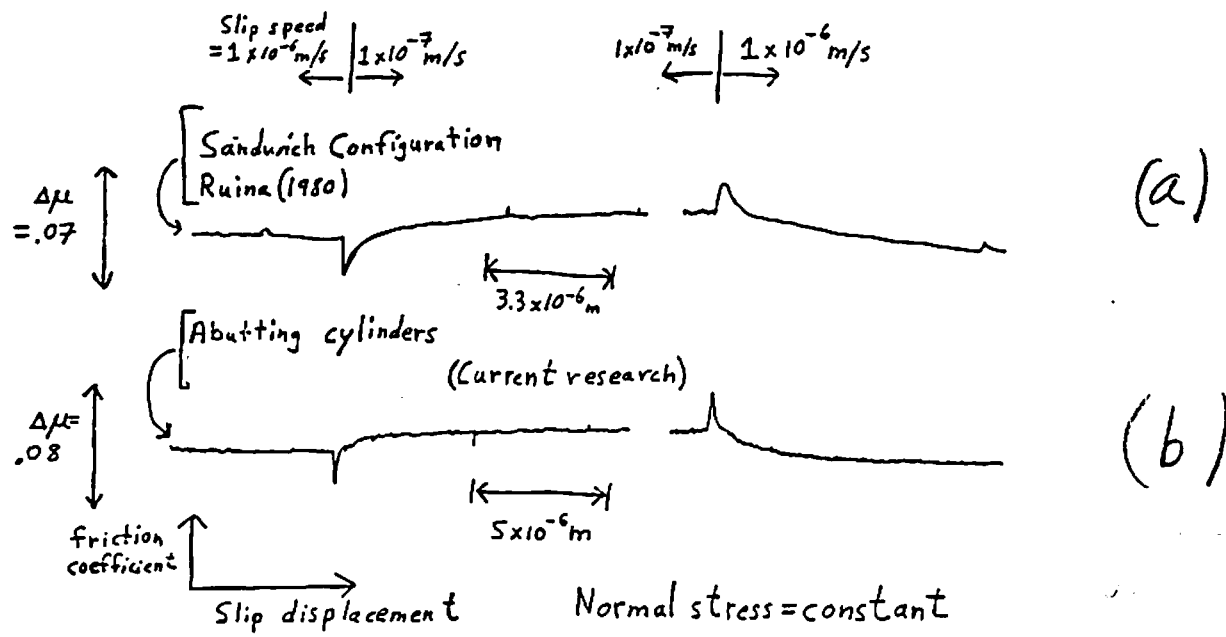 Slip speed
=1×10⁻⁶m/s
1×10⁻⁷m/s
1×10⁻⁷m/s
1×10⁻⁶m/s
Sandwich Configuration
Ruina (1980)
Δμ
=.07
(a)
3.3×10⁻⁶m
Abutting cylinders
(Current research)
Δμ=
.08
(b)
5×10⁻⁶m
friction
coefficient
Slip displacement
Normal stress=constant